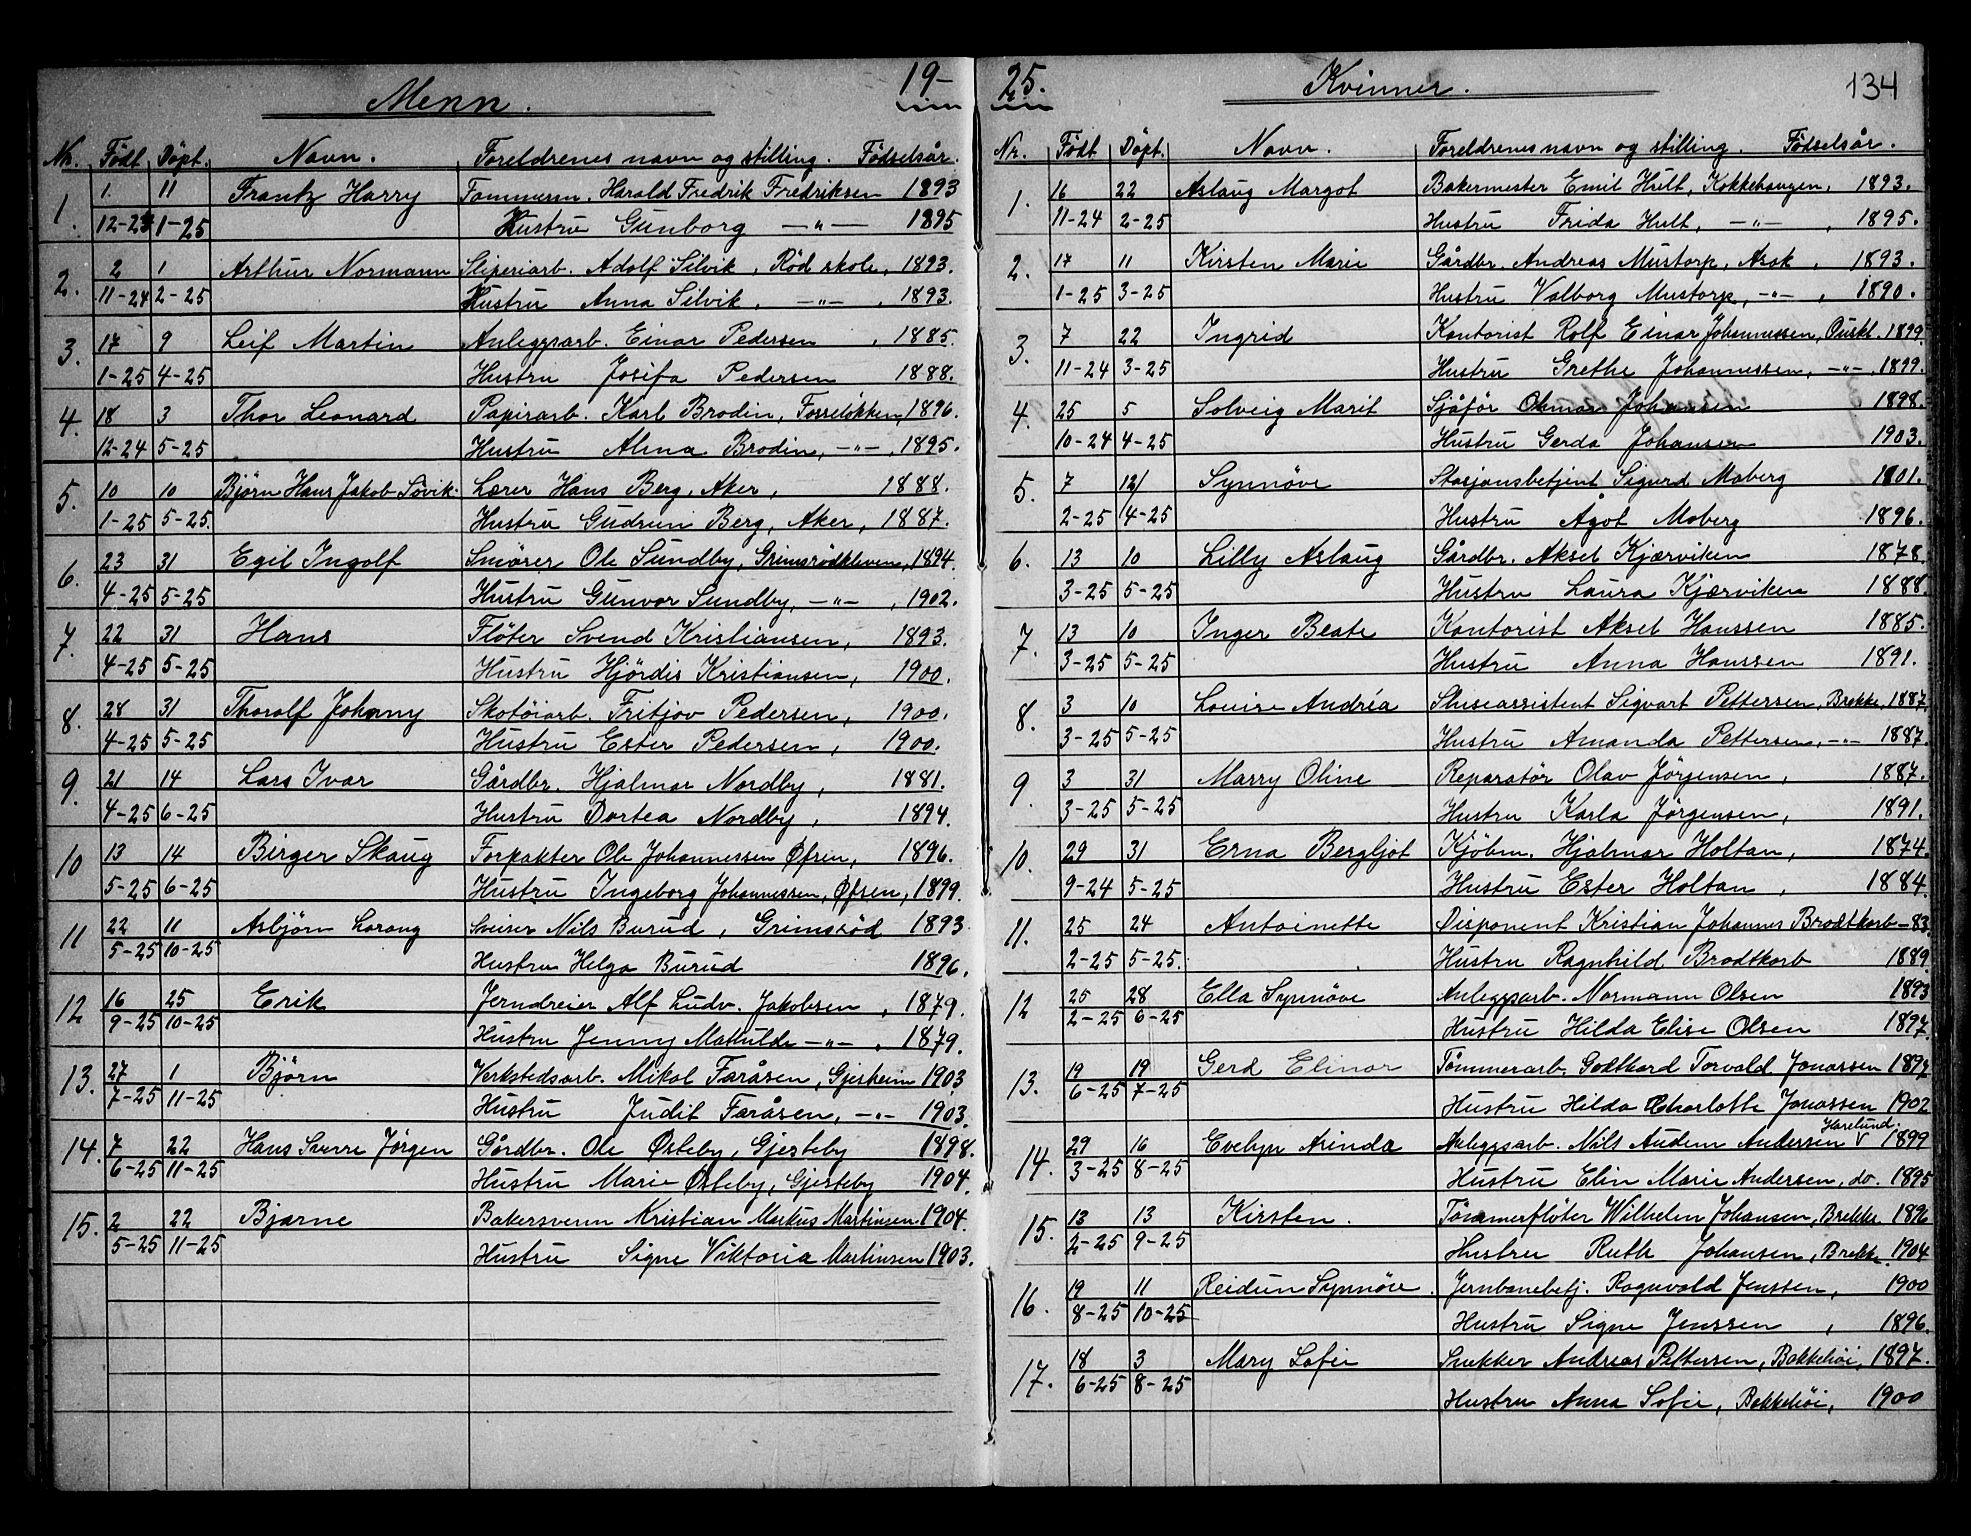 Menn.
19-
Nr. Født Döpt. Navn. Foreldrenes navn og stilling. Fødselsår.
1. 1. 11 Frantz Harry Tommerm. Harald Fredrik Fredriksen 1893
12-24 1-25 Hustru Gunborg —"— 1895
2. 2 1 Arthur Normann Sliperiarb. Adolf Silvik, Röd skole, 1893.
11-24 2-25 Hustru Anna Silvik. —"— , 1893.
3. 17 9 Leif Martin Anleggsarb. Einar Pedersen , 1885.
1-25 4-25 Hustru Josifa Pedersen 1888.
4. 18 3 Thor Leonard Papirarb. Karl Brodin, Fosseløkken, 1896.
12-24 5-25 Hustru Alma Brodin, —"— , 1895.
5. 10 10 Bjørn Hans Jakob Sövik. Lærer Hans Berg, Aker, 1888.
1-25 5-25. Hustru Gudrun Berg, Aker, 1887.
6. 23 31 Egil Ingolf Smörer Ole Sundby, Grimsrödkleven, 1894.
4-25 5-25 Hustru Gunvor Sundby, —"— , 1902.
7. 22 31 Hans Flöter Svend Kristiansen, 1893.
4-25 5-25 Hustru Hjördis Kristiansen, 1900.
8. 28 31 Thoralf Johnny Skotöiarb. Fritjov Pedersen, 1900.
4-25 5-25 Hustru Ester Pedersen, 1900.
9. 21 14 Lars Ivar Gårdbr. Hjalmar Nordby, 1881.
4-25 6-25 Hustru Dortea Nordby, 1894.
10 13 14 Birger Skaug Forpakter Ole Johannessen Øfsen, 1896.
5-25 6-25 Hustru Ingeborg Johannessen, Øfsen, 1899.
11 22 11 Asbjörn Lorang Sveiser Nils Burud, Grimsröd 1893.
5-25 10-25 Hustru Helga Burud 1896.
12 16 25 Erik Jerndreier Alf Ludv. Jakobsen , 1879.
9-25 10-25 Hustru Jenny Mathilde —"— . 1879.
13. 27 1 Björn Verkstedsarb. Mikal Faråsen, Gjesheim 1903
7-25 11-25 Hustru Judit Faråsen, —"— 1903.
14. 7 22 Hans Sverre Jörgen Gårdbr. Ole Østeby, Gjesteby 1898.
6-25 11-25 Hustru Marie Østeby, Gjesteby 1904.
15. 2 22 Bjarne Bakersvenn Kristian Markus Martinsen. 1904.
5-25 11-25 Hustru Signe Viktoria Martinsen 1903.
25.
Kvinner.
134
Nr. Födt Döpt. Navn. Foreldrenes navn og stilling. Födselsår.
1. 16 22 Aslaug Margot Bakermester Emil Hult, Kokkehaugen, 1893.
11-24 2-25 Hustru Frida Hult, —"— , 1895.
2. 17 11 Kirsten Marie Gårdbr. Andreas Mustorp, Asak , 1893.
1-25 3-25 Hustru Valborg Mustorp, —"— , 1890.
3. 7 22 Ingrid Kontorist Rolf Einar Johannessen, 1899
11-24 3-25 Hustru Grethe Johannessen, —"— , 1899.
4. 25 5 Solveig Marit Sjåför Johansen 1898.
10-24 4-25 Hustru Gerda Johansen 1903.
5. 7 12/ Synnöve Stasjonsbetjent Sigurd Moberg 1801.
2-25 4-25 Hustru Ågot Moberg 1896.
6. 13 10 Lilly Aslaug Gårdbr. Aksel Kjærviken 1878.
3-25 5-25 Hustru Laura Kjærviken 1888.
7. 13 10 Inger Beate Kontorist Aksel Hanssen 1885.
3-25 5-25 Hustru Anna Hanssen 1891.
8. 3 10 Louise Andréa Sluseassistent Sigvart Pettersen, Brekke, 1887.
3-25 5-25 Hustru Amanda Pettersen, —"— 1887.
9. 3 31 Marry Oline Reparatör Olav Jörgensen, 1887.
3-25 5-25 Hustru Karla Jörgensen, 1891.
10. 29 31 Erna Bergljot Kjöbm. Hjalmar Holtan, 1874.
9-24 5-25 Hustru Ester Holtan , 1884.
11. 25 24 Antoinette Disponent Kristian Johannes Brodtkorb -83.
2-25 5-25. Hustru Ragnhild Brodtkorb 1889.
12 25 28 Ella Synnöve Anleggsarb. Normann Olsen 1893
2-25 6-25 Hustru Hilda Elise Olsen 1897.
13. 19 19 Gerd Elinor Tömmerarb. Godthard Torvald Jonassen 1897
6-25 7-25 Hustru Hilda Charlotte Jonassen 1902
Harelund.
14. 29 16 Evelyn Arinda Anleggsarb. Nils Audem Andersen V 1899
3-25 8-25 Hustru Elin Marie Andersen, do. 1895
15. 13 13 Kirsten. Tömmerflöter Wilhelm Johansen, Brekke. 1896
2-25 9-25 Hustru Ruth Johansen, Brekke. 1904
16. 19 11 Reidun Synnöve. Jernbanebetj. Ragnvald Jenssen, 1900
8-25 10-25 Hustru Signe Jenssen , 1896.
17. 18 3 Mary Sofie Snekker Andreas Pettersen, Bakkehöi, 1897.
6-25 8-25 Hustru Anna Sofie, Bakkehöi, 1900